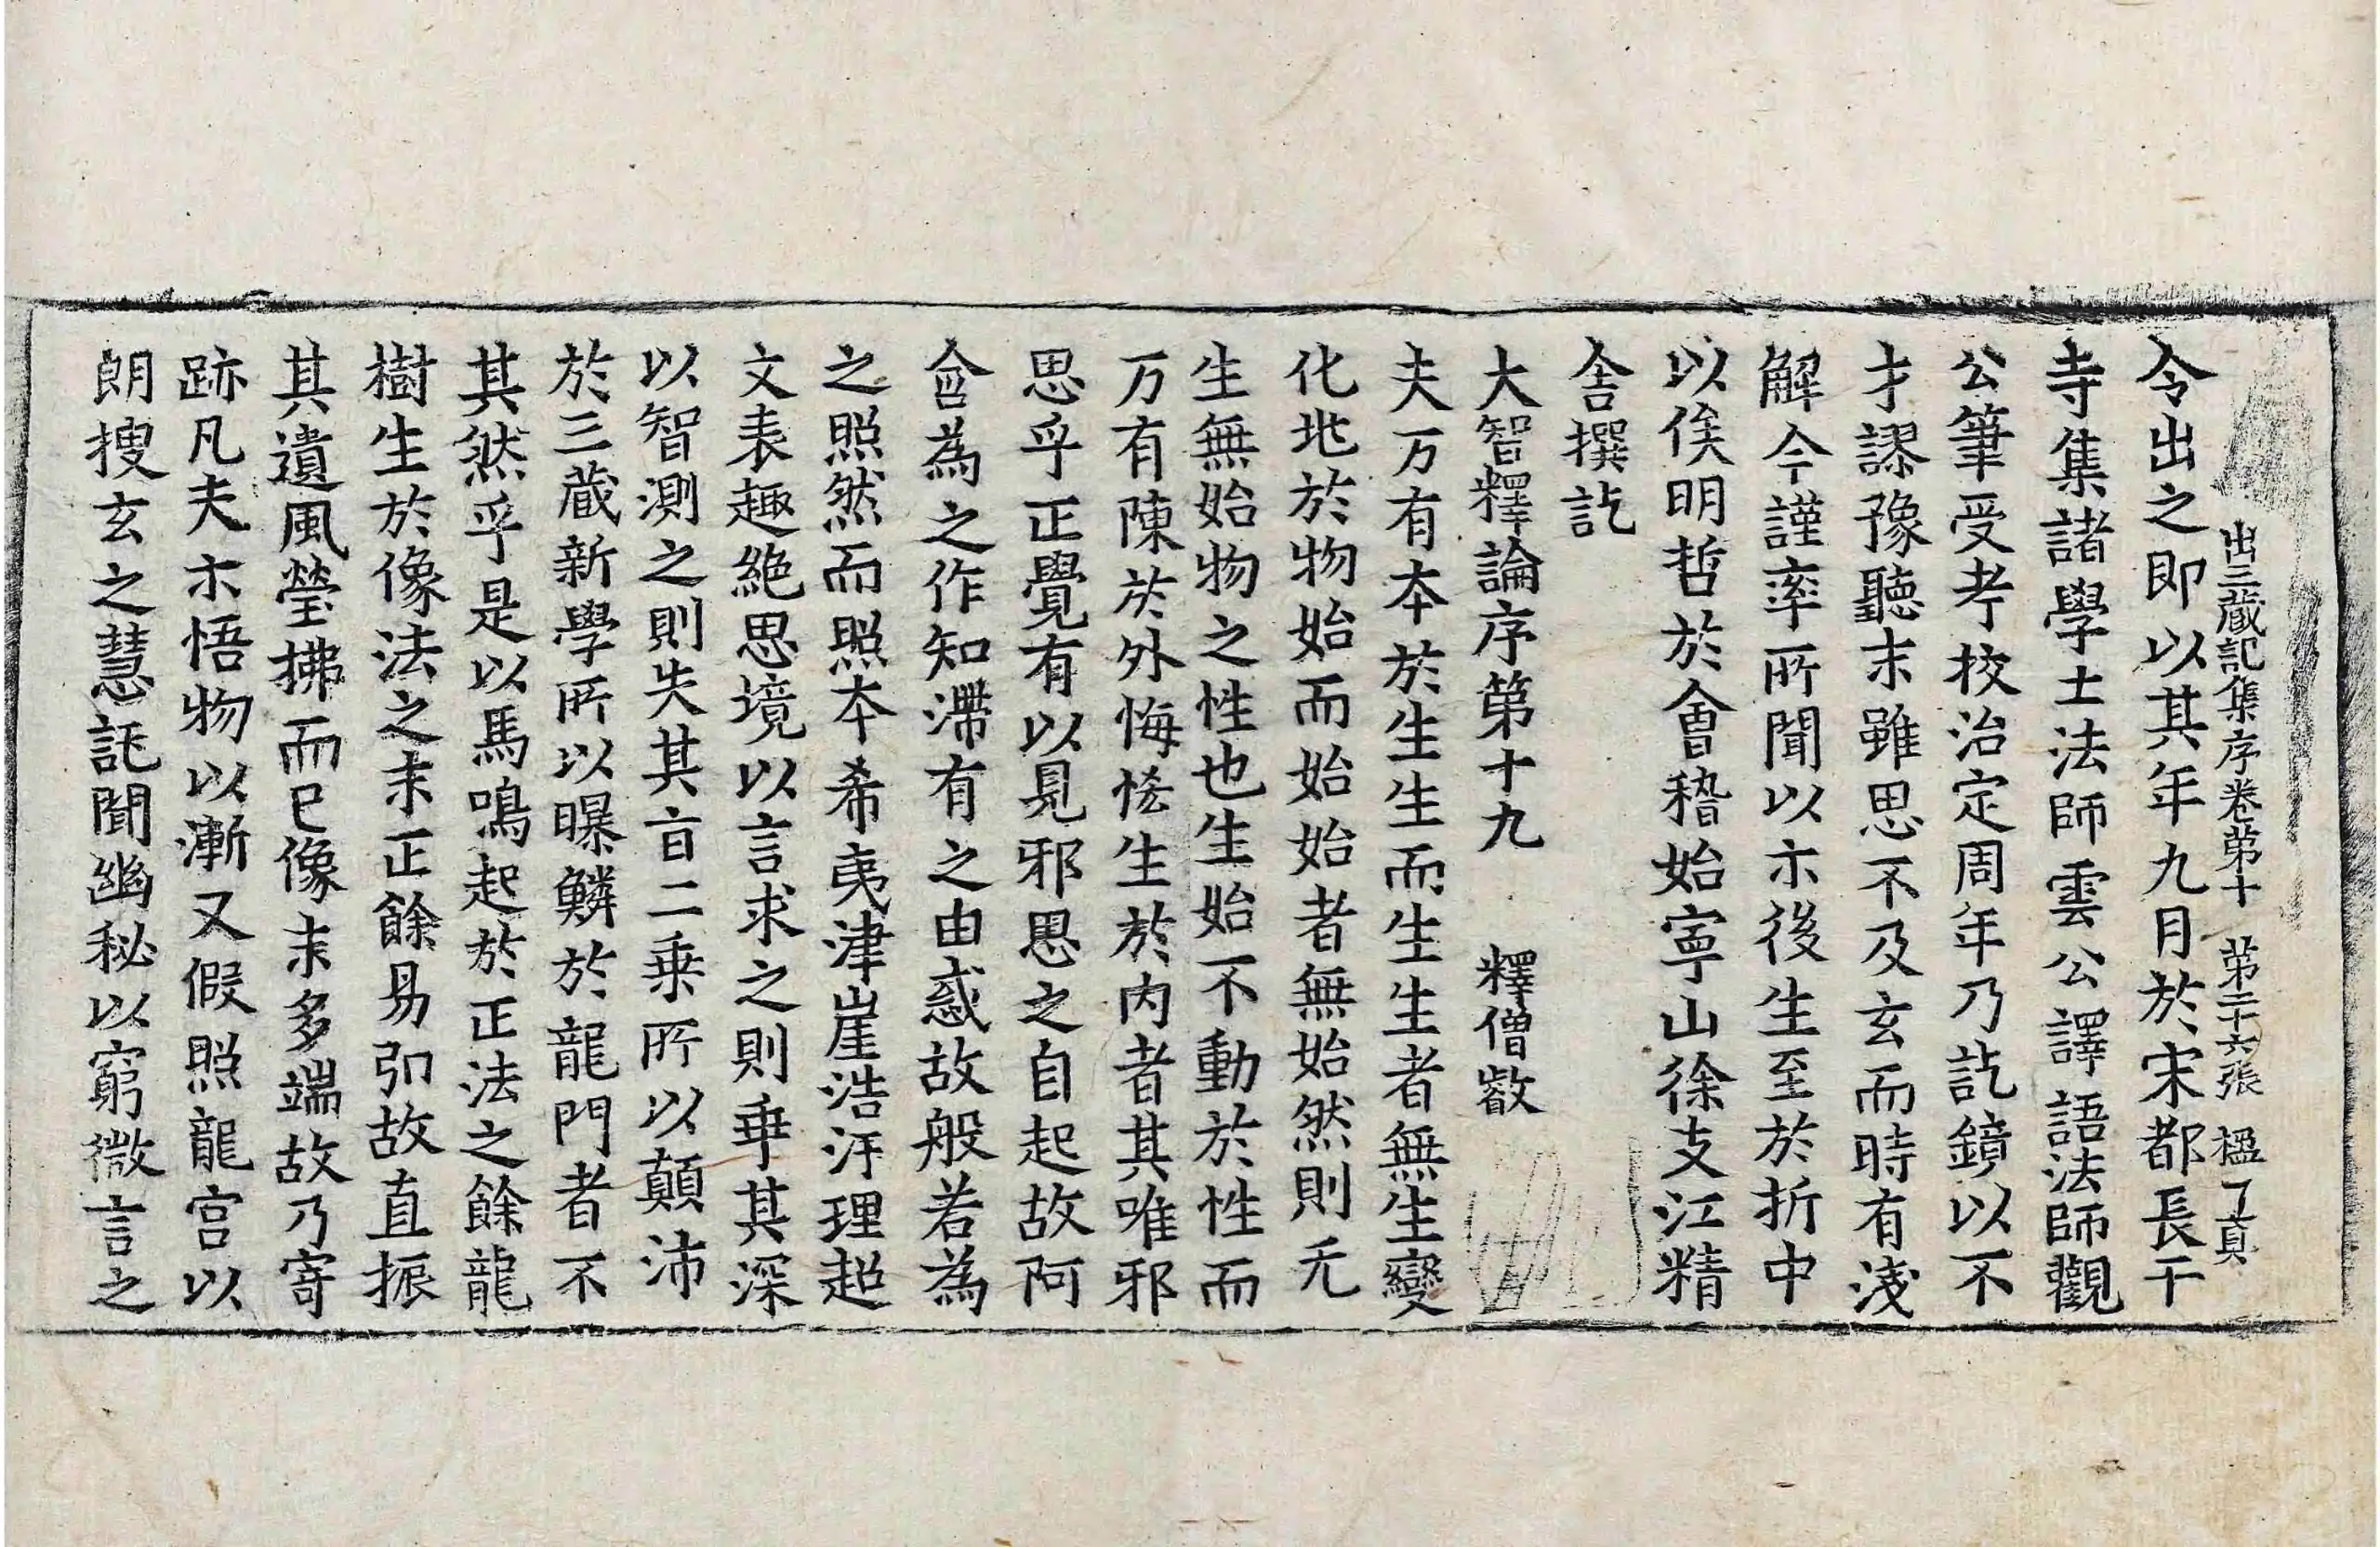 出三藏記集序卷第十　第二十六張　楹　了真
令出之即以其年九月於宋都長干
寺集諸學士法師雲公譯語法師觀
公筆受考校治定周年乃訖鏡以不
才謬豫聽末雖思不及玄而時有淺
解今謹率所聞以示後生至於折中
以俟明哲於會稽始寧山徐支江精
舍撰訖
大智釋論序第十九　釋僧叡
夫万有本於生生而生生者無生變
化兆於物始而始始者無始然則无
生無始物之性也生始不動於性而
万有陳於外悔悋生於内者其唯邪
思乎正覺有以見邪思之自起故阿
含為之作知滯有之由惑故般若為
之照然而照本希夷津崖浩汗理超
文表趣絶思境以言求之則乖其深
以智測之則失其旨二乗所以顛沛
於三藏新學所以曝鱗於龍門者不
其然乎是以馬鳴起於正法之餘龍
樹生於像法之末正餘易弘故直振
其遺風瑩拂而已像末多端故乃寄
跡凡夫示悟物以漸又假照龍宫以
朗搜玄之慧託聞幽秘以窮微言之